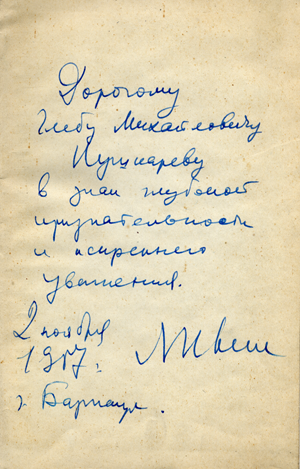 Дорогому
Глебу Михайловичу
Пушкареву
в знак глубокой
признательности
и искреннего
уважения.
2 ноября
1957 г.
г. Барнаул.